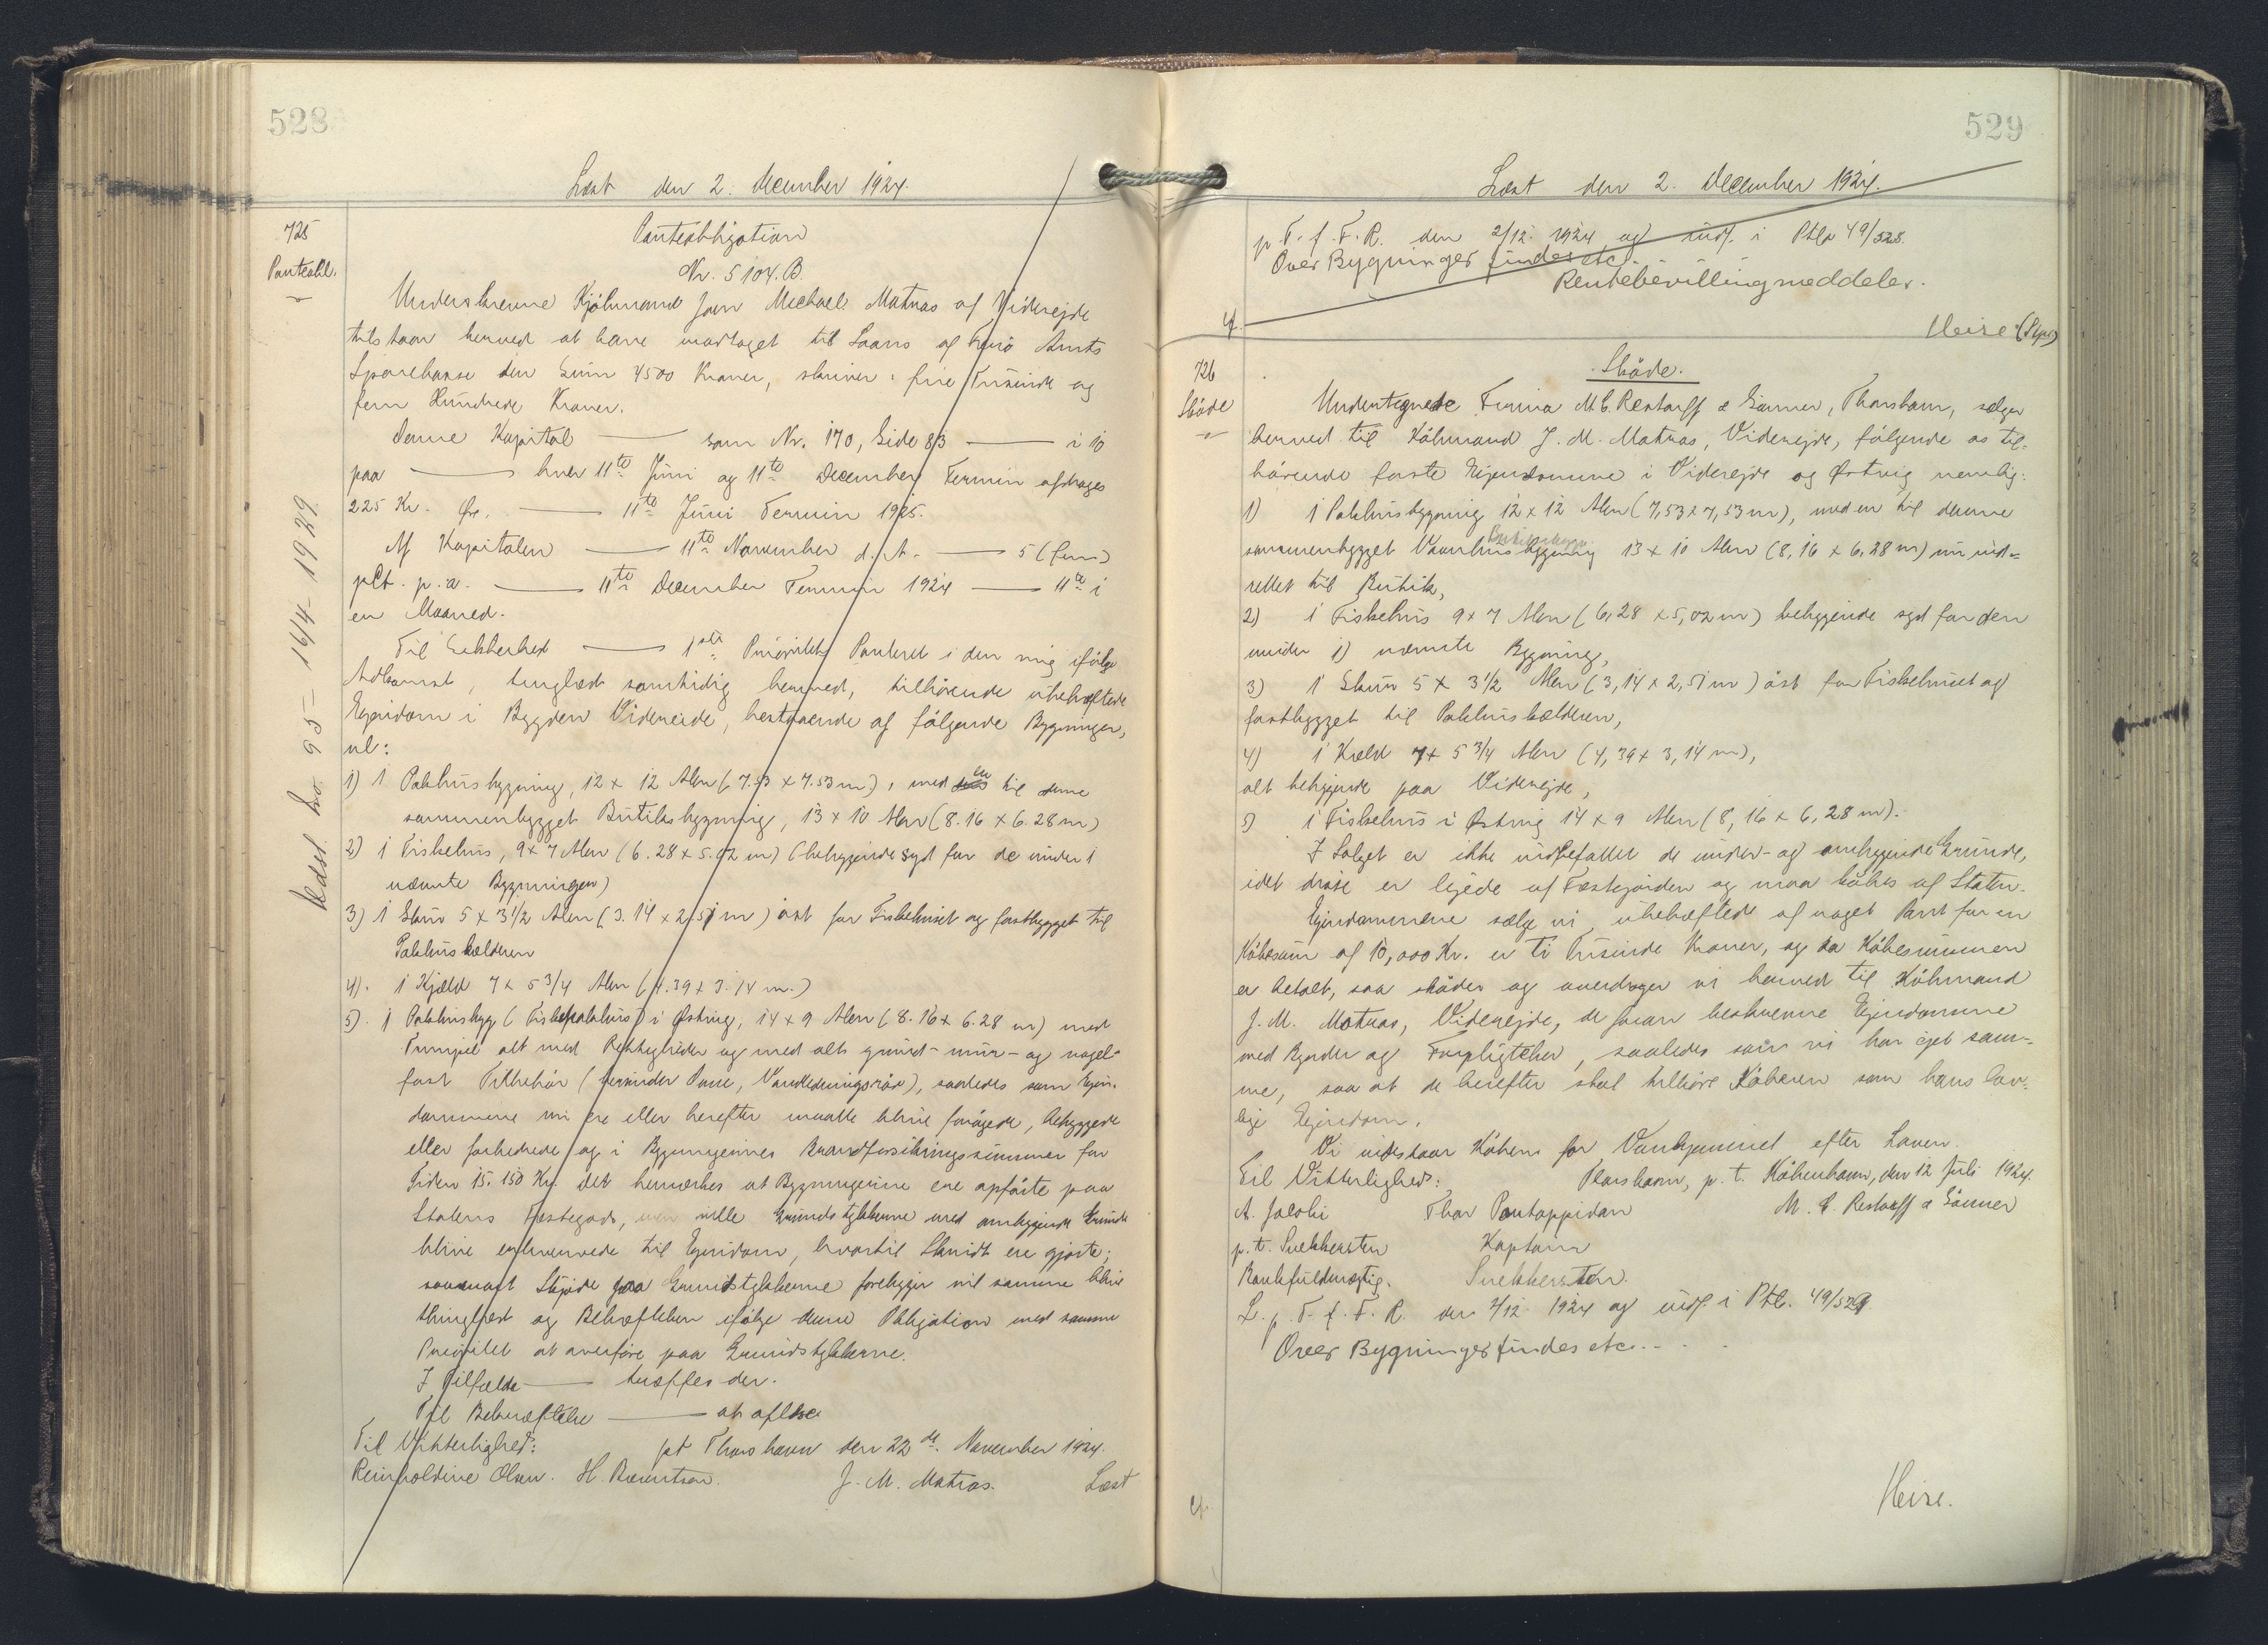 528
Læst den 2. December 1924.
725
Panteobl.
Panteobligation
Nr. 5104. B.
Underskrevne Kjøbmand Joen Michael Matras af Viderejde
tilstaar herved at have modtaget til Laans af Færø Amts
Sparekasse den Sum 4500 Kroner, skriver: fire Tusinde og
fem Hundrede Kroner.
Denne Kapital — som Nr. 170, Side 83 — i 10
paa — hver 11te Juni og 11te December Termin afdrages
225 Kr. Øre. — 11te Juni Termin 1925.
Af Kapitalen — 11te November d. A. — 5 (fem)
pCt. p. a. — 11te December Termin 1924 — 11te i
en Maaned.
Til Sikkerhed — 1ste Prioritets Panteret i den mig ifølge
Adkomst, tinglæst samtidig hermed, tilhørende ubehæftede
Ejendom i Bygden Videreide, bestaaende af følgende Bygninger,
nl:
1) 1 Pakhusbygning, 12 x 12 Alen (7.53 x 7.53 m), med en til denne
sammenbygget Butiksbygning, 13 x 10 Alen (8.16 x 6.28 m)
2) 1 Fiskehus, 9 x 7 Alen (6.28 x 5.02 m) (beliggende syd for de under 1
nævnte Bygninger)
3) 1 Skur 5 x 3 1/2 Alen (3.14 x 2.51 m) øst for Fiskehuset og fastbygget til
Pakhuskælderen
4). 1 Kjæld 7 x 5 3/4 Alen (4.39 x 3.14 m.)
5). 1 Pakhusbyg (Fiskepakhus) i Østvig, 14 x 9 Alen (8.16 x 6.28 m) med
alt med Rettigheder og med alt grund- mur- og nagel-
fast Tilbehør (herunder Ovne, Vandledningsrør), saaledes som Ejen-
dommene nu ere eller herefter maatte blive forøgede, bebyggede
eller forbedrede og i Bygningernes Brandforsikringssummer for
Tiden 15.150 Kr. det bemærkes at Bygningerne ere opførte paa
Statens Fæstegods, men ville Grundstykkerne med omliggende Grund
blive erhvervede til Ejendom, hvortil Skridt ere gjorte;
saasnart Skjøde paa Grundstykkerne foreligger vil samme blive
thinglæst og Behæftelsen ifølge denne Obligation med samme
Prioritet at overføre paa Grundstykkerne.
I Tilfælde — træffes der.
Til Bekræftelse — at aflæse
Til Vitterlighed: pt Thorshavn den 22de November 1924.
Reinholdine Olsen. H. Berentsen. J. M. Matras. Læst
95 16/4- 1929
529
Læst den 2. December 1924.
p. T. f. F. R. den 2/12. 1924 og indf. i Ptlp 49/528.
Over Bygninger findes etc.
Rentebevilling meddeles.
Heise (Stpt)
726
Skøde
Skøde.
Undertegnede Firma M. C. Restorff & Sønner, Thorshavn, sælger
herved til Købmand J. M. Matras, Viderejde, følgende os til-
hørende faste Ejendomme i Viderejde og Østvig nemlig:
1) 1 Pakhusbygning 12 x 12 Alen (7,53 x 7,53 m), med en til denne
sammenbygget Vaanhusbygning 13 x 10 Alen (8,16 x 6,28 m) nu ind-
rettet til Butik,
2) 1 Fiskehus 9 x 7 Alen (6,28 x 5,02 m) beliggende syd for den
under 1) nævnte Bygning,
3) 1 Skur 5 x 3 1/2 Alen (3,14 x 2,51 m) øst for Fiskehuset og
fastbygget til Pakhuskælderen,
4) 1 Kæld 7 x 5 3/4 Alen (4,39 x 3,14 m),
alt beliggende paa Viderejde,
5) 1 Fiskehus i Østvig 14 x 9 Alen (8,16 x 6,28 m).
I Salget er ikke indbefattet de under- og omliggende Grunde,
idet disse er lejede af Fæstejorden og maa købes af Staten.
Ejendommene sælge vi ubehæftede af noget Pant for en
Købesum af 10,000 Kr. er ti Tusinde Kroner, og da Købesummen
er betalt, saa skøder og overdrager vi herved til Købmand
J. M. Matras, Viderejde, de foran beskrevne Ejendomme
med Byrder og Forpligtelser, saaledes som vi har ejet sam-
me, saa at de herefter skal tilhøre Køberen som hans lov-
lige Ejendom.
Vi indestaar Køberen for Vanhjemmel efter Loven.
Til Vitterlighed: Thorshavn, p. t. København, den 12 Juli 1924.
A. Jacobi Thor Pontoppidan M. C. Restorff & Sønner
p. t. Snekkersten Kaptain
Bankfuldmægtig. Snekkersten.
L. p. T. f. F. R. den 2/12 1924 og indf. i Ptl. 49/529.
Over Bygninger findes etc. . . .
Heise.